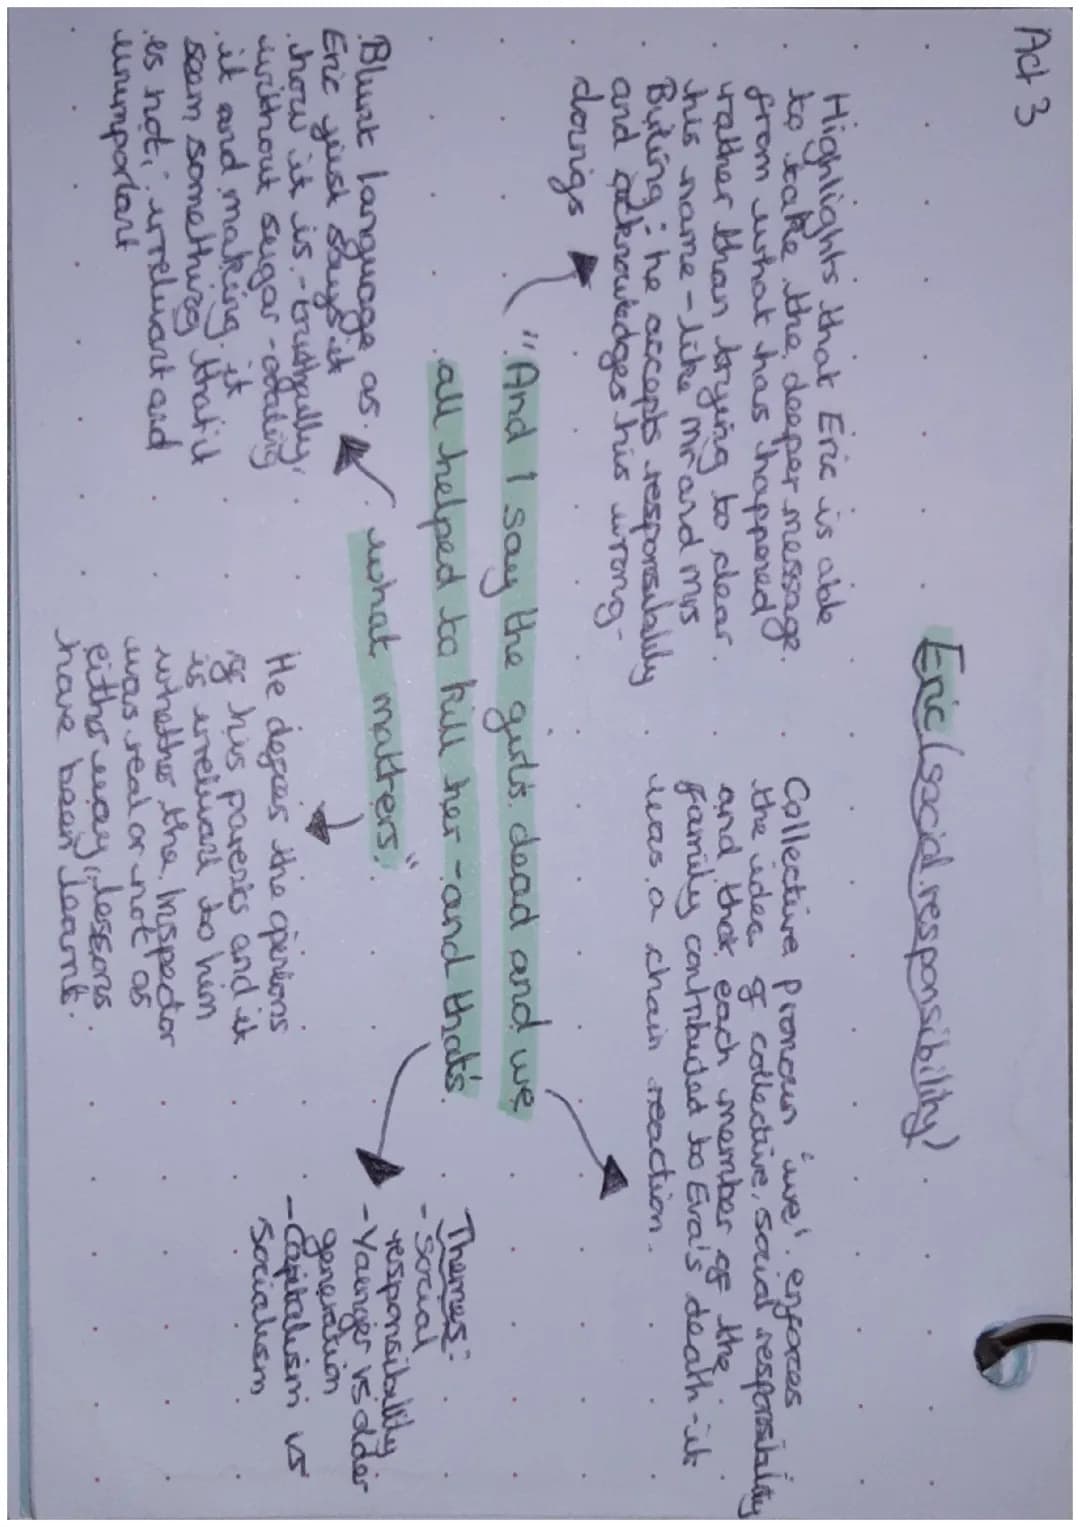 Act 3
Eric (social responsibility)
Highlights that Eric is able
to take the deeper message
from what has happened
rather than trying to clear
his name - like Mr and Mrs
Birling; he accepts responsibility
and acknowledges his wrong-
doings
Collective pronoun 'we' enforces
the idea of collective, social responsibility
and that each member of the
family contributed to Eva's death - it
was a chain reaction.
"And I say the girl's dead and we
all helped to kill her - and that's
what matters."
Blunt language as
Eric just says it
how it is - truthfully,
without sugar-coating
it and making it
seem something that it
is not; irrelevant and
unimportant
He defies the opinions
of his parents and it
is irrelevant to him
whether the Inspector
was real or not as
either way, lessons
have been learnt.
Themes:
- Social
responsibility
- Younger vs older
generation
- Capitalism vs
Socialism